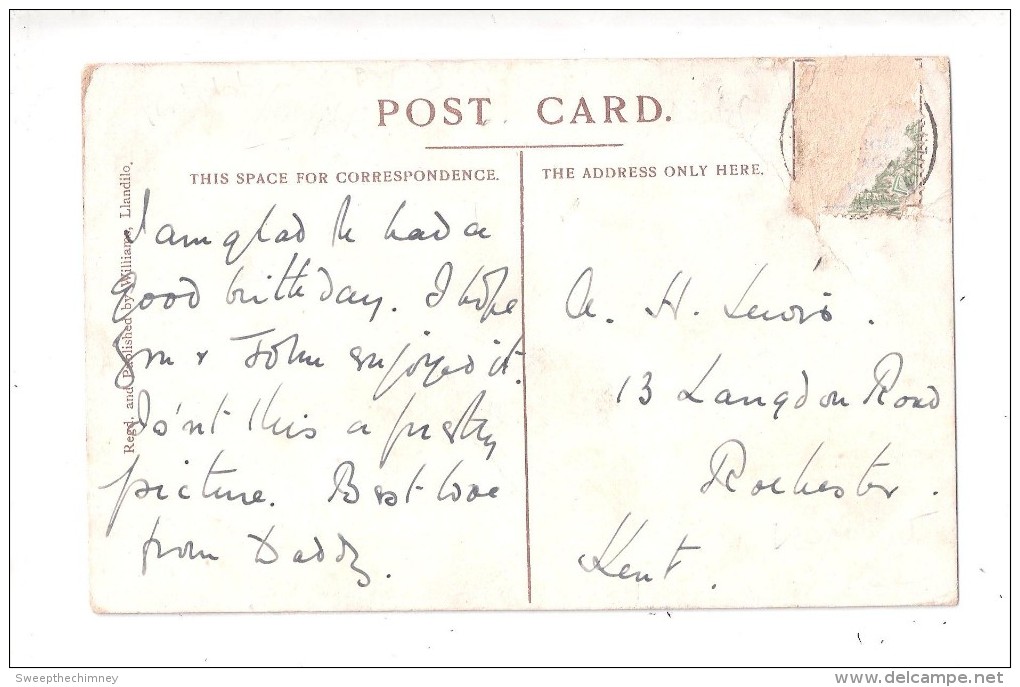 POST CARD.
THIS SPACE FOR CORRESPONDENCE.
THE ADDRESS ONLY HERE.
Regd. and Published by Williams, Llandilo.
I am glad had a
good birthday. I hope
& John enjoyed it.
Is'nt this a pretty
picture. Best love
from Daddy.
A. H. Lewis.
13 Langdon Road
Rochester.
Kent.
Sweepthechimney
delcampe.net